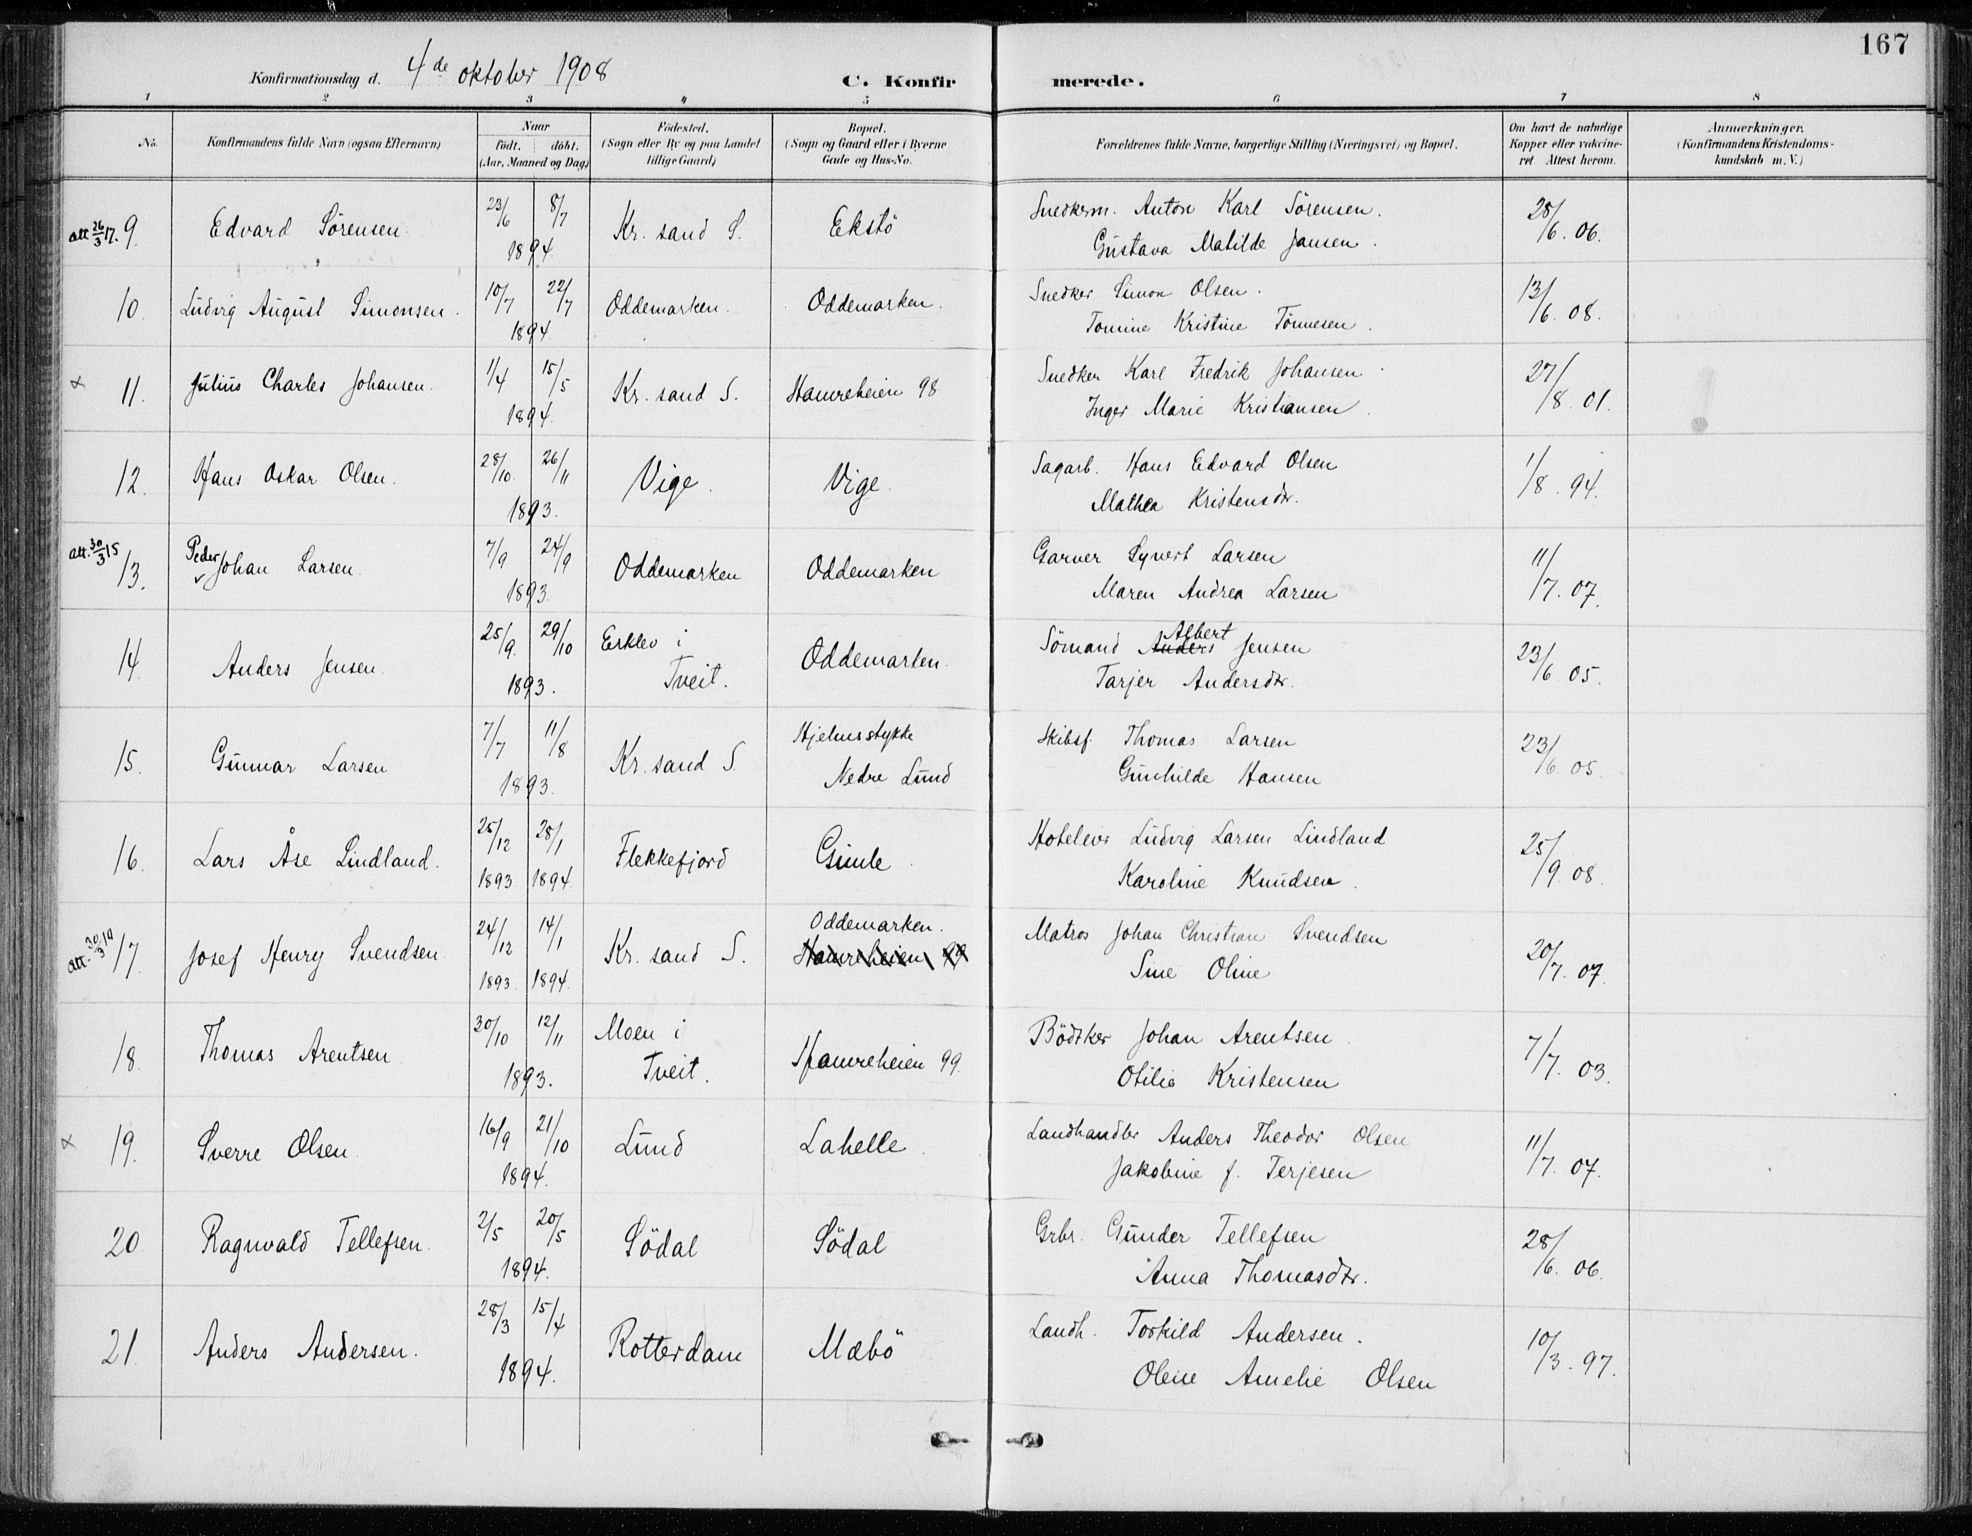 167
Konfirmationsdag d. 4de oktober 1908 C. Konfirmerede.
1 2 3 4 5 6 7 8
No. Konfirmandens fulde Navn (ogsaa Efternavn) Naar født. døbt. (Aar, Maaned og Dag) Fødested. (Sogn eller By og paa Landet tillige Gaard) Bopæl. (Sogn og Gaard eller i Byerne Gade og Hus-No. Forældrenes fulde Navne, borgerlige Stilling (Næringsvei) og Bopæl. Om havt de naturlige Kopper eller vakcineret. Attest herom. Anmærkninger. (Konfirmandens Kristendomskundskab m. V.)
Att 26/3 17. 9. Edvard Sörensen. 23/6 8/7 1894. Kr. sand S. Ekstö Snedkerm. Anton Karl Sörensen. 28/6. 06.
Gustava Matilde Jansen.
10. Ludvig August Simonsen. 10/7 22/7 1894. Oddemarken. Oddemarken. Snedker Simon Olsen. 13/6. 08.
Tomine Kristine Tönnesen.
x 11. Julius Charles Johansen. 1/4 15/5 1894. Kr. sand S. Hamreheien 98 Snedker Karl Fredrik Johansen 27/8. 01.
Inger Marie Kristiansen.
12. Hans Oskar Olsen. 28/10. 26/11 1893. Vige. Vige. Sagarb. Hans Edvard Olsen 1/8. 94.
Mathea Kristensdtr.
Att. 30/3 15 13. Peder Johan Larsen. 7/9 24/9 1893. Oddemarken Oddemarken Garver Syvert Larsen 11/7. 07.
Maren Andrea Larsen
14. Anders Jensen. 25/9. 29/10 1893. Erklev i Tveit. Oddemarken. Sömand Anders Albert Jensen 23/6. 05.
Tarjer Andersdtr.
15. Gunnar Larsen 7/7 11/8 1893. Kr. sand S. Hjelmsstykke Nedre Lund Skibsf. Thomas Larsen 23/6. 05.
Gunhilde Hansen
16. Lars Åse Lindland. 25/12 1893. 28/1 1894. Flekkefjord Gimle. Hoteleier Ludvig Larsen Lindland 25/9. 08.
Karoline Knudsen.
Att. 30/3 19 17. Josef Henry Svendsen. 24/12 1893. 14/1 1894. Kr. sand S. Oddemarken. Hamreheien 99 Matros Johan Christian Svendsen 20/7. 07.
Sine Oline
18. Thomas Arentsen 30/10 12/11 1893. Moen i Tveit. Hamreheien 99. Bödtker Johan Arentsen. 7/7. 03.
Otilie Kristensen
x 19. Sverre Olsen. 16/9 21/10 1894. Lund Lahelle. Landhandler Anders Theodor Olsen 11/7. 07.
Jakobine f. Terjesen
20 Ragnvald Tellefsen. 2/5 20/5 1894. Södal Södal Grbr. Gunder Tellefsen 28/6. 06.
Anna Thomasdtr.
21. Anders Andersen. 28/3 15/4 1894. Rotterdam Mæbö Landh. Torkild Andersen. 10/3. 97.
Oleise Amelie Olsen